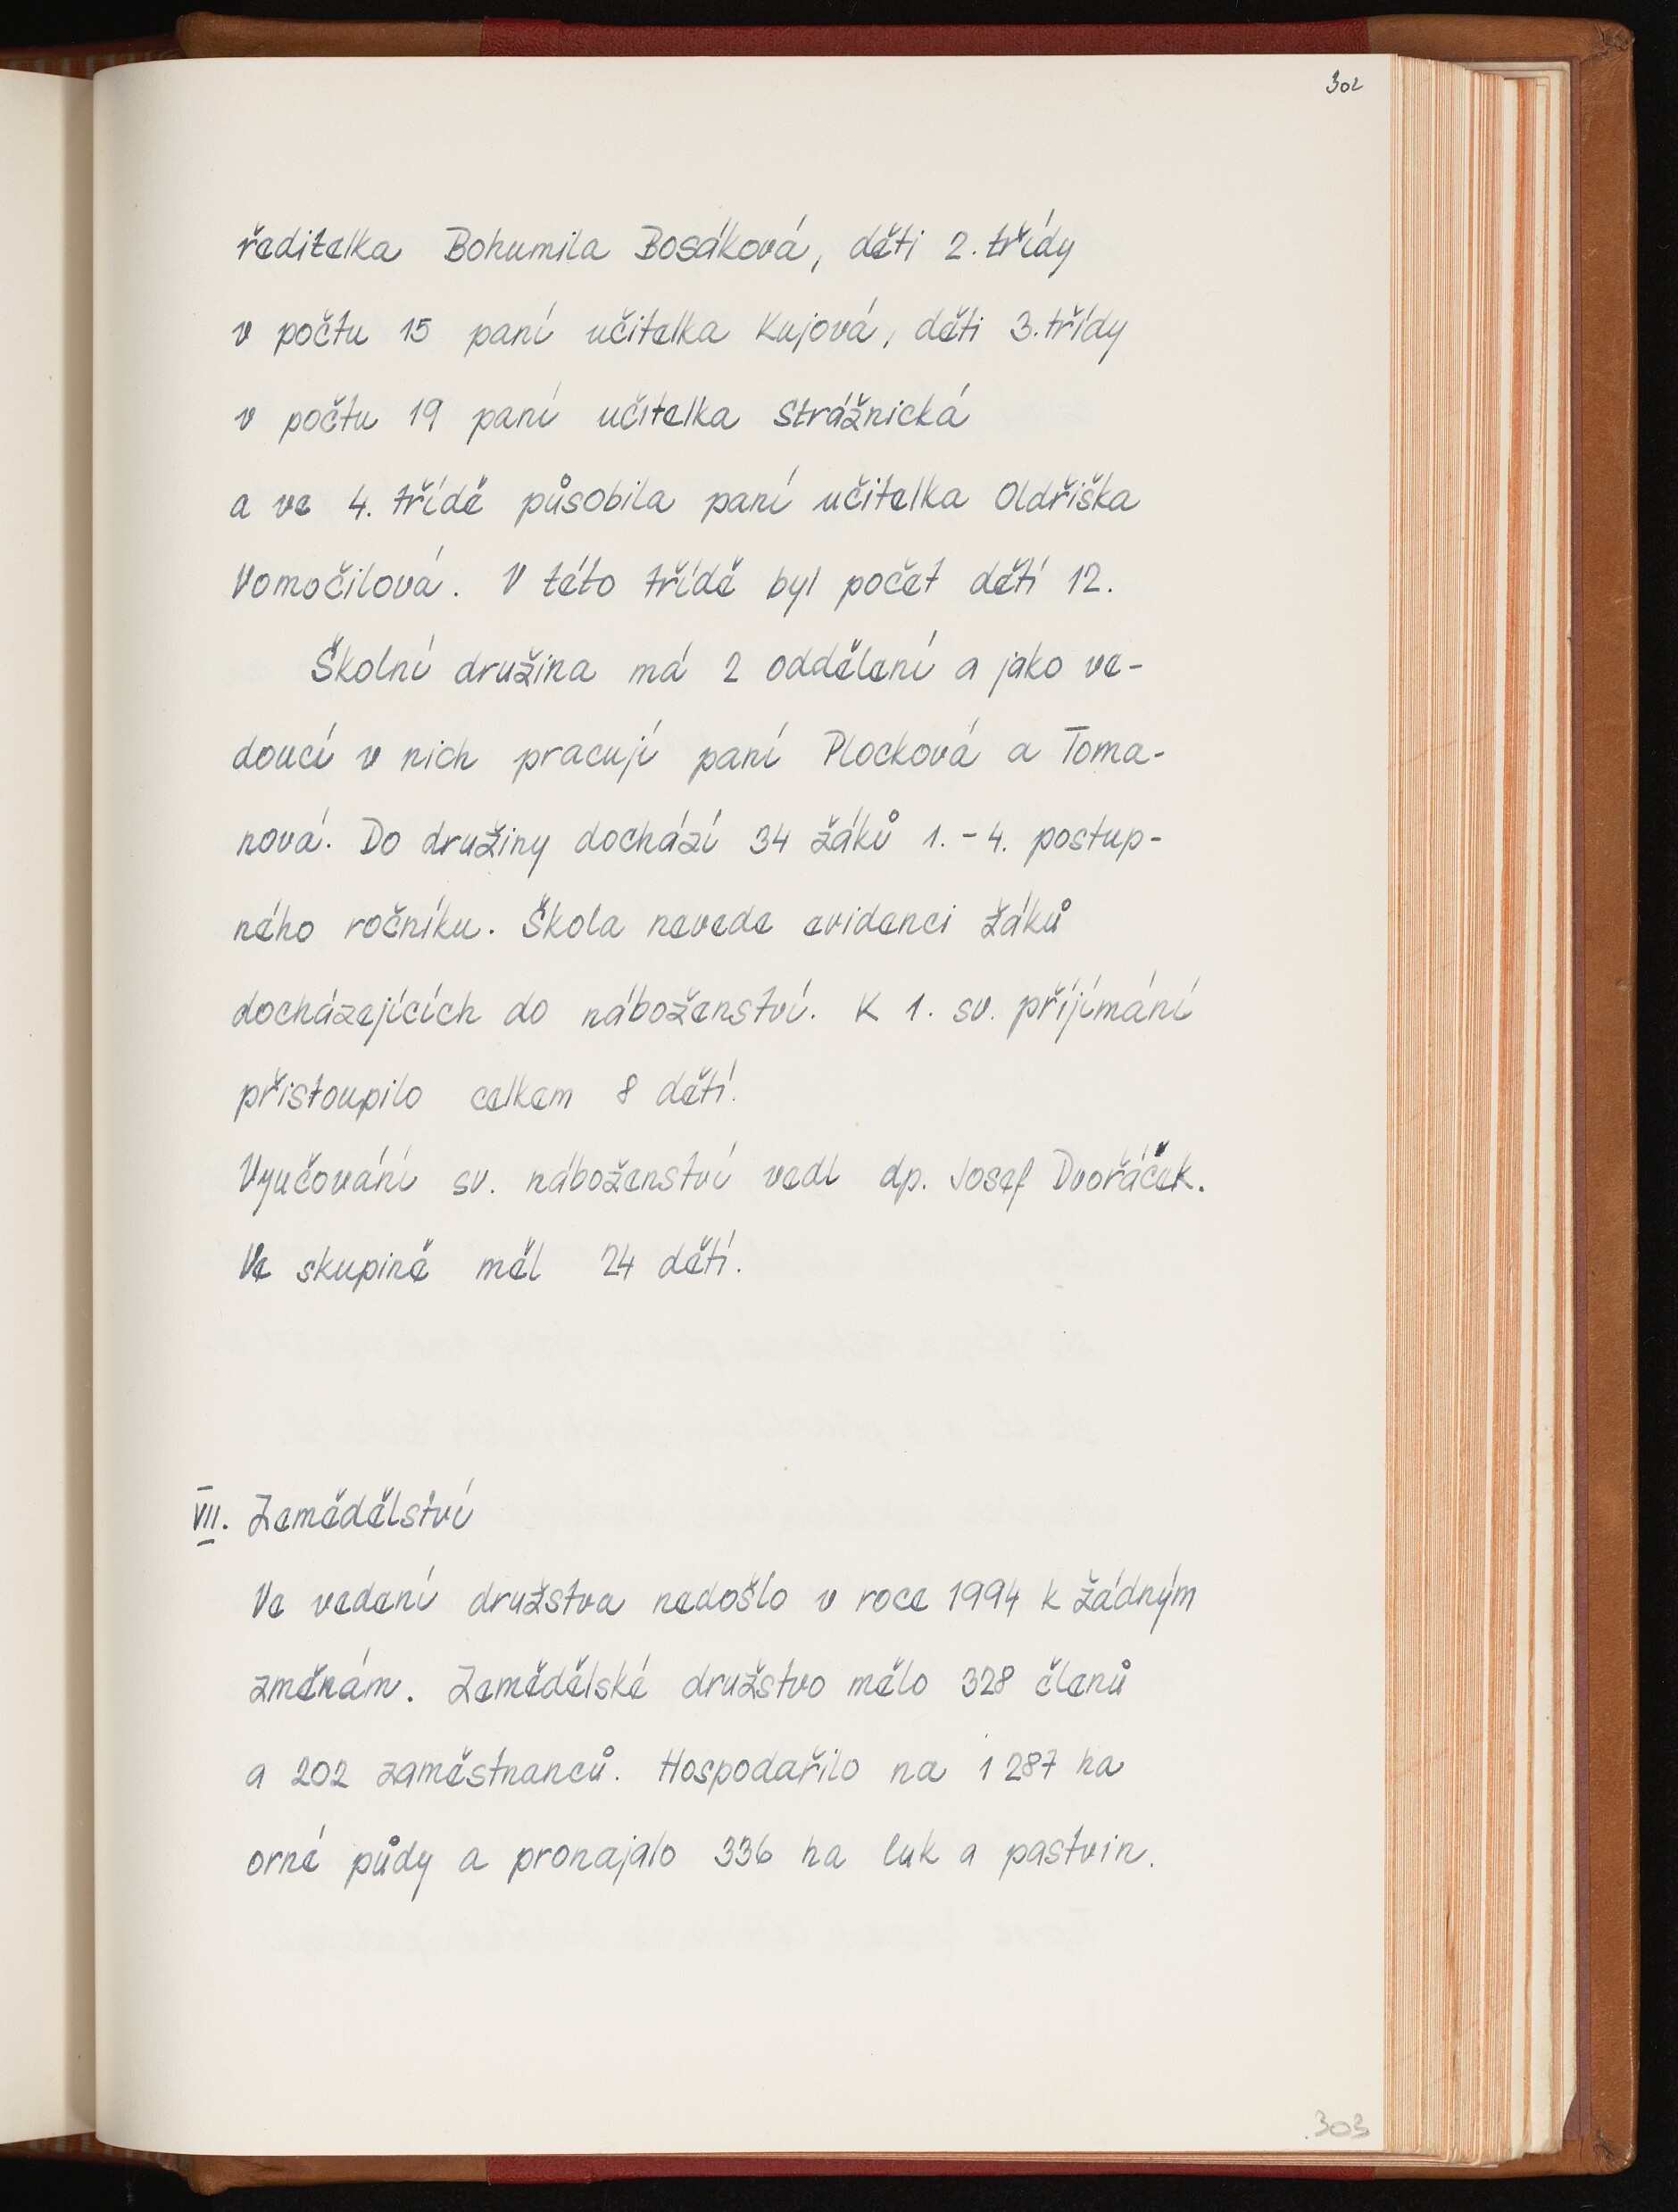 302
ředitelka Bohumila Bosáková, děti 2. třídy
v počtu 15 paní učitelka Kujová, děti 3. třídy
v počtu 19 paní učitelka Strážnická
a ve 4. třídě působila paní učitelka Oldřiška
Vomočilová. V této třídě byl počet dětí 12.
Školní družina má 2 oddělení a jako ve-
doucí v nich pracují paní Plocková a Toma-
nová. Do družiny dochází 34 žáků 1. - 4. postup-
ného ročníku. Škola nevede evidenci žáků
docházejících do náboženství. K 1. sv. příjímání
přistoupilo celkem 8 dětí.
Vyučování sv. náboženství vedl dp. Josef Dvořáček.
Ve skupině měl 24 dětí.
VII. Zemědělství
Ve vedení družstva nedošlo v roce 1994 k žádným
změnám. Zemědělské družstvo mělo 328 členů
a 202 zaměstnanců. Hospodařilo na 1 287 ha
orné půdy a pronajalo 336 ha luk a pastvin.
303